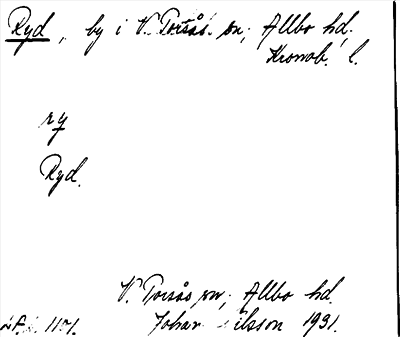 Ryd, by i V. Torsås sn; Allbo hd,
Kronob. l.
ry
Ryd.
V. Torsås sn; Allbo hd.
1101. Johan Nilsson 1931.